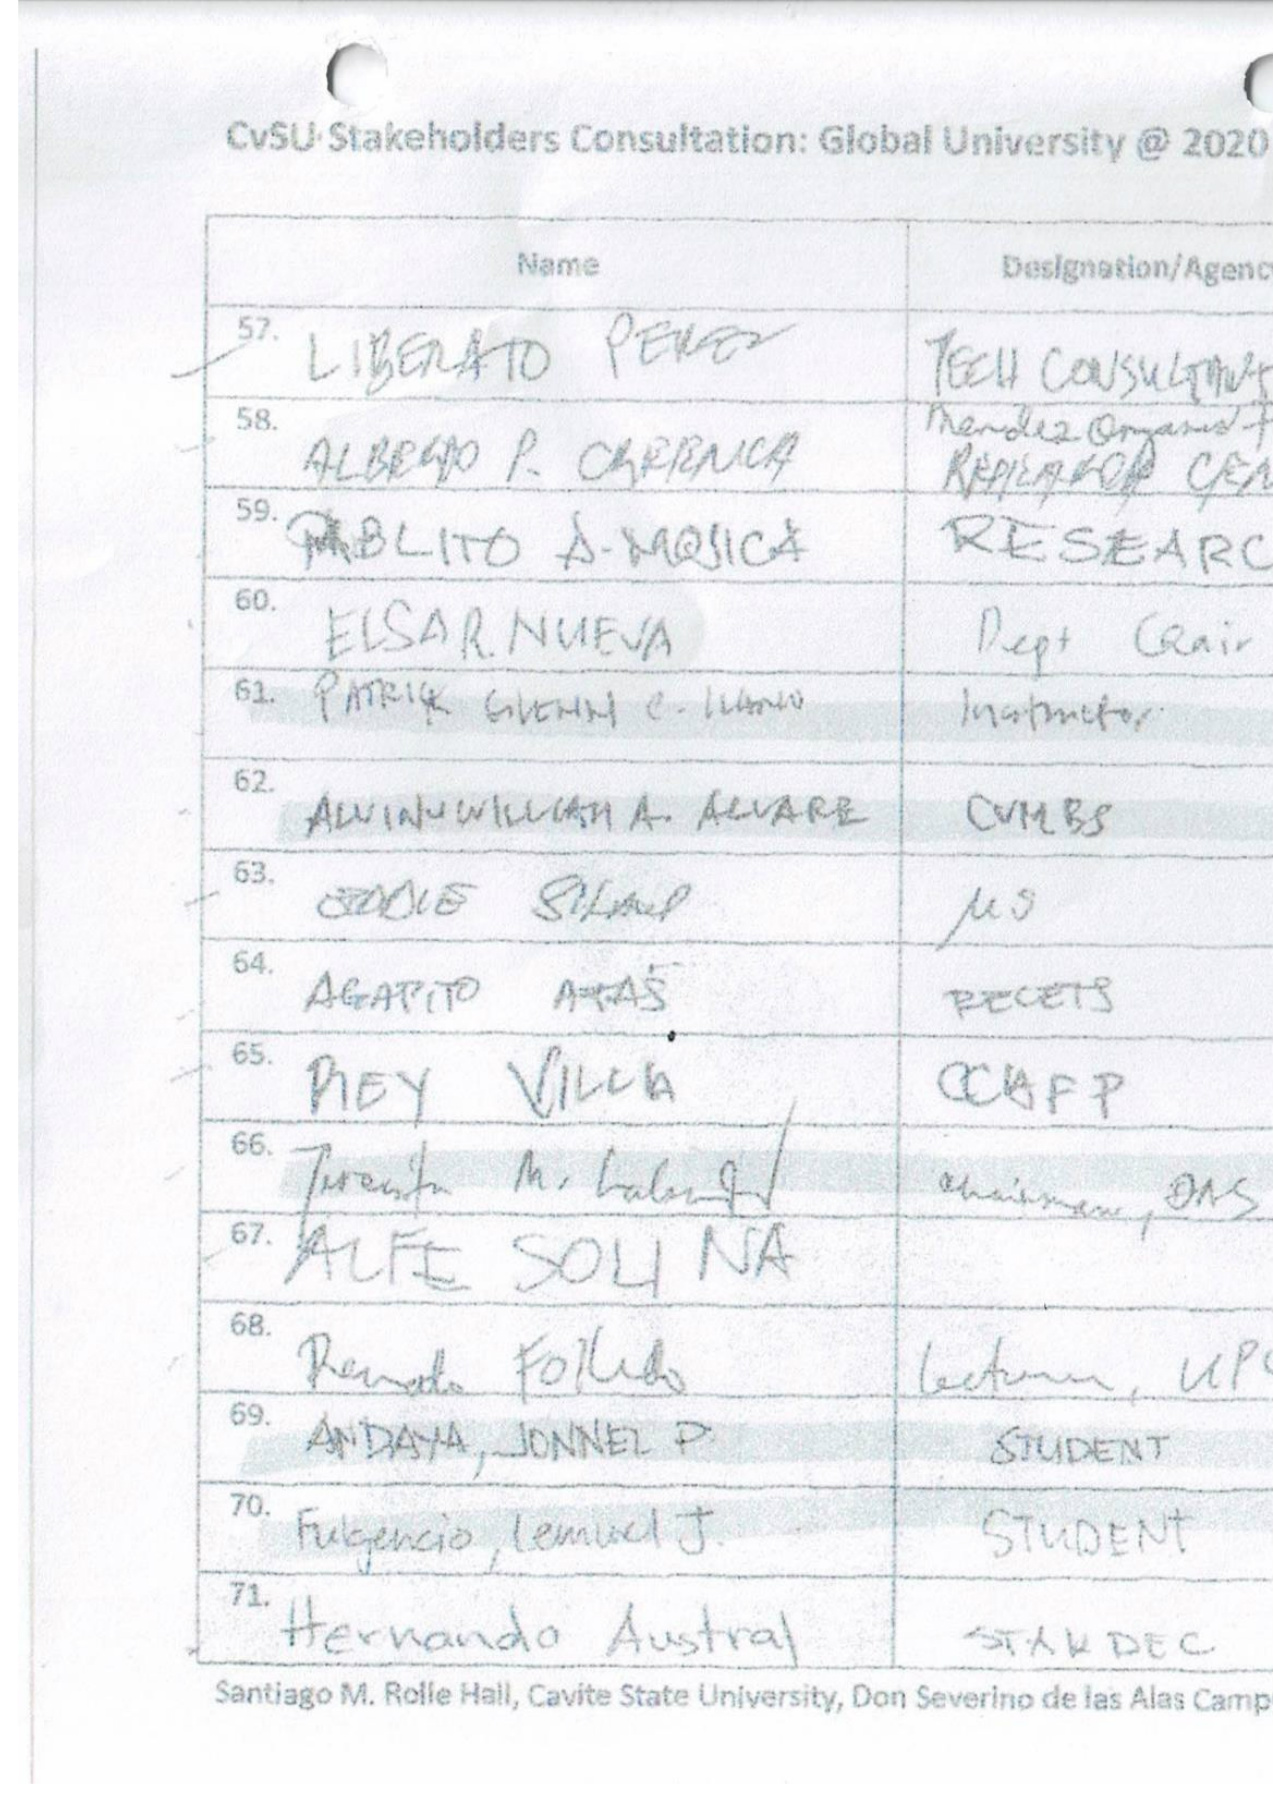 CvSU Stakeholders Consultation: Global University @ 2020
Name
Designation/Agency
57. LIBERATO PEREZ
TECH CONSULTANT
58. P.
Mendez Organic
59. PABLITO A. MOJICA
RESEARC
60. ELSA R. NUEVA
Dept Chair
61. PATRICK GLENN C. ILANO
Instructor
62. ALVIN WILLIAM A. ALVARE
CVMBS
63.
64. AGAPITO
RECETS
65. REY VILLA
66. M.
Chairman, DAS
67. ALFE SOLINA
68. Renato Folledo
Lecturer,
69. ANDAYA, JONNEL P.
STUDENT
70. Fulgencio, Lemuel J.
STUDENT
71. Hernando Austral
STAKDEC
Santiago M. Rolle Hall, Cavite State University, Don Severino de las Alas Camp